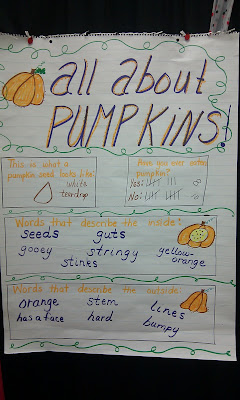 all about
PUMPKINS!
This is what a
pumpkin seed looks like:
white
teardrop
Have you ever eaten
pumpkin?
Yes:
No:
Words that describe the inside:
seeds guts
gooey stringy yellow-
orange
stinks
Words that describe the outside:
orange stem lines
has a face hard bumpy